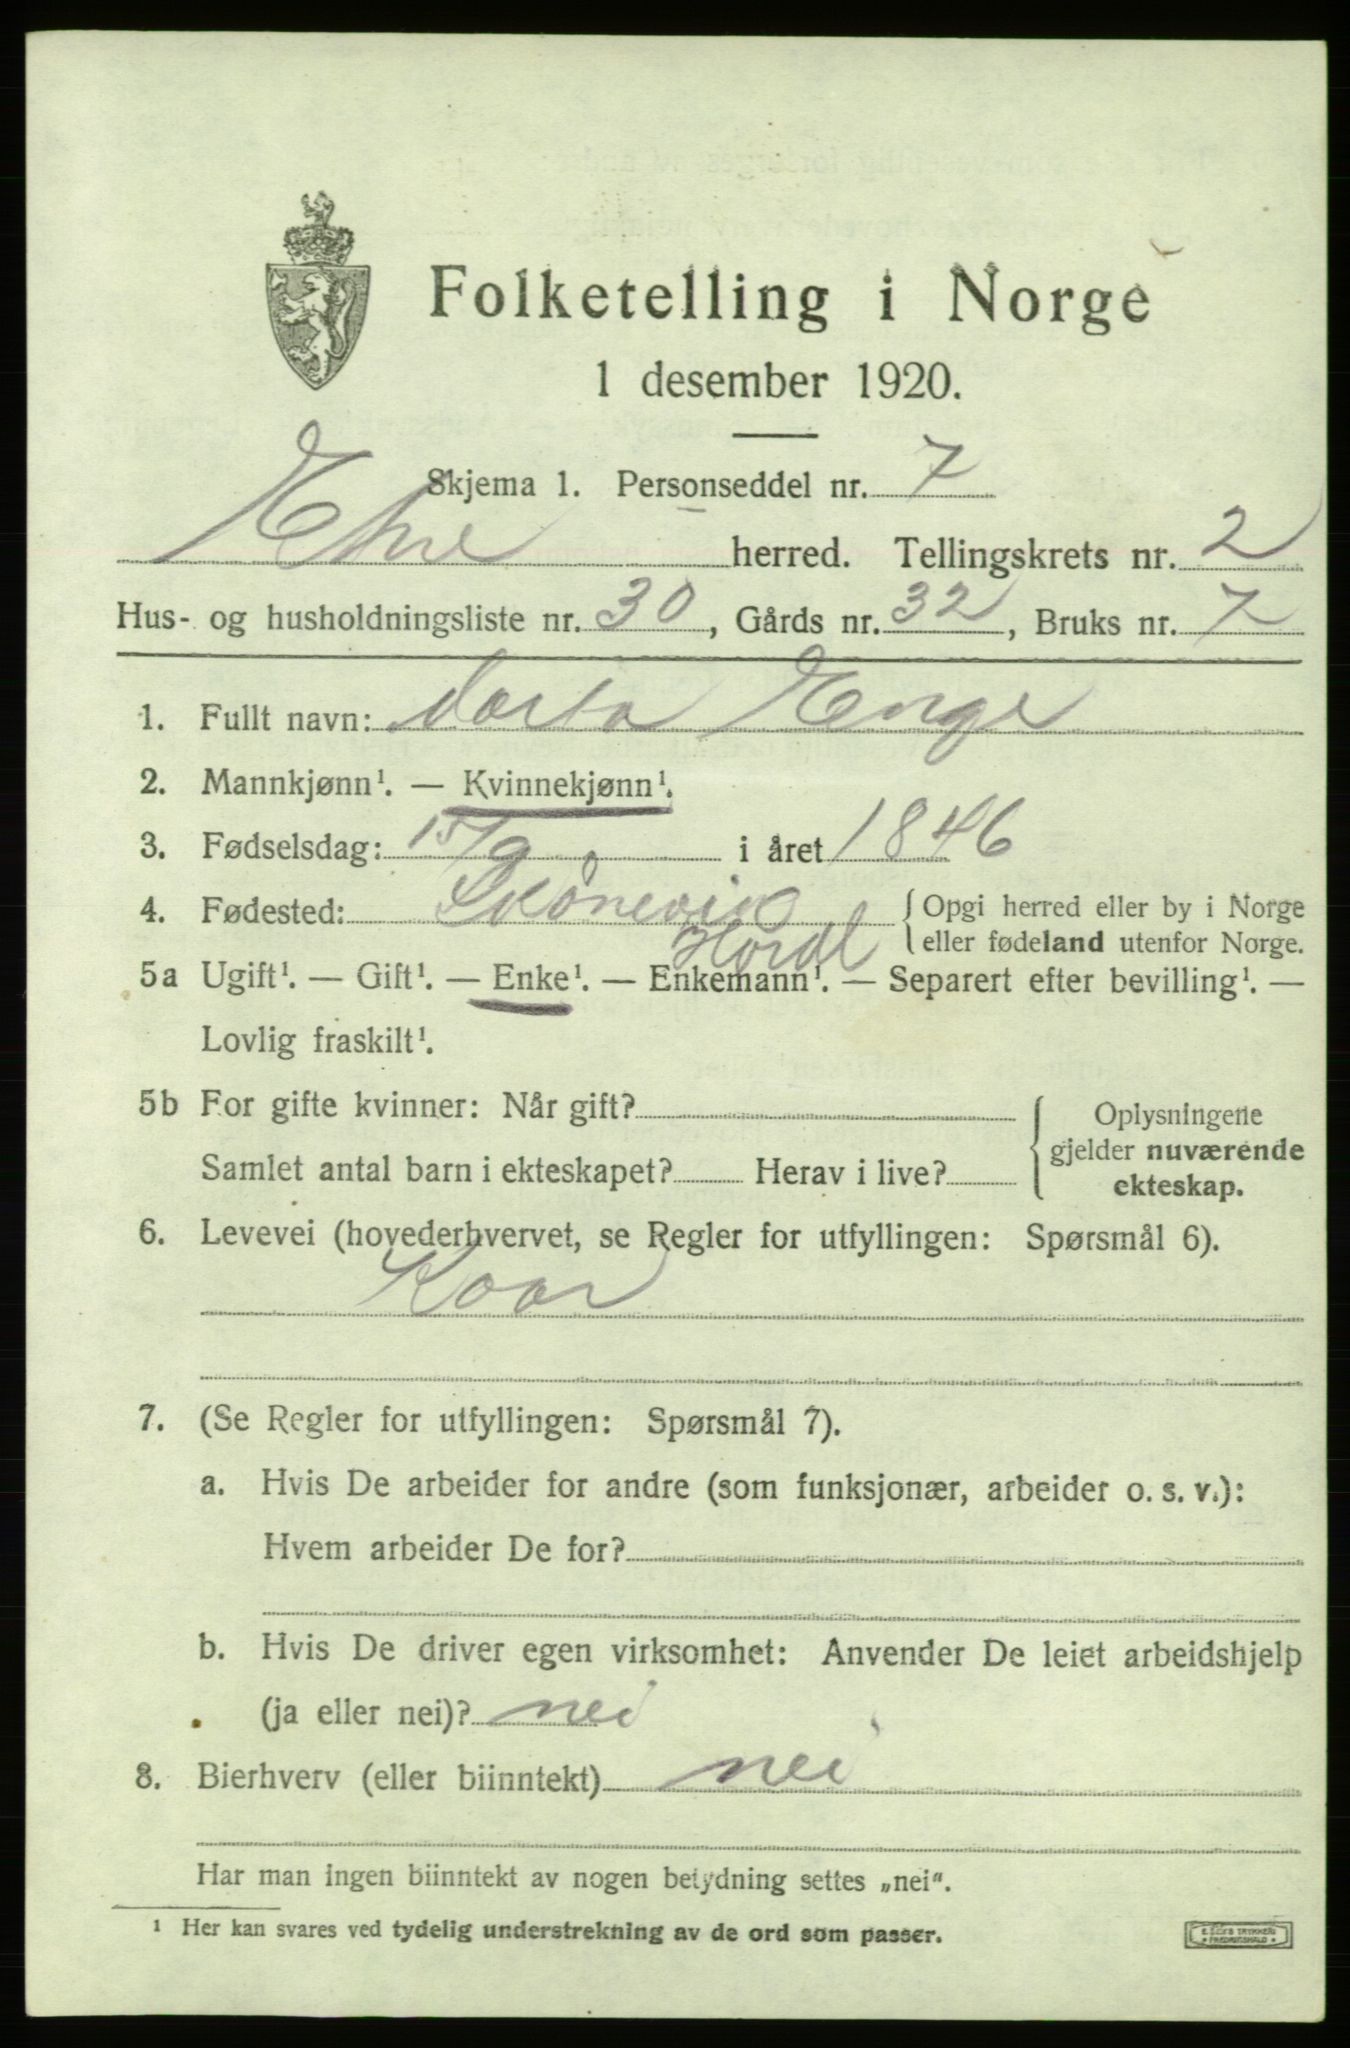 Folketelling i Norge
1 desember 1920.
Skjema 1. Personseddel nr. 7
Etne herred. Tellingskrets nr. 2
Hus- og husholdningsliste nr. 30, Gårds nr. 32, Bruks nr. 7
1. Fullt navn: Marta Enge
2. Mannkjønn¹. — Kvinnekjønn¹.
3. Fødselsdag: 15/9 i året 1846
4. Fødested: Skånevik { Opgi herred eller by i Norge
Hordl eller fødeland utenfor Norge.
5a Ugift¹. — Gift¹. — Enke¹. — Enkemann¹. — Separert efter bevilling¹. —
Lovlig fraskilt¹.
5b For gifte kvinner: Når gift? { Oplysningene
gjelder nuværende
Samlet antal barn i ekteskapet? Herav i live?
ekteskap.
6. Levevei (hovederhvervet, se Regler for utfyllingen: Spørsmål 6).
Kaar
7. (Se Regler for utfyllingen: Spørsmål 7).
a. Hvis De arbeider for andre (som funksjonær, arbeider o. s. v.):
Hvem arbeider De for?
b. Hvis De driver egen virksomhet: Anvender De leiet arbeidshjelp
(ja eller nei)? nei
8. Bierhverv (eller biinntekt) nei
Har man ingen biinntekt av nogen betydning settes „nei".
¹ Her kan svares ved tydelig understrekning av de ord som passer.